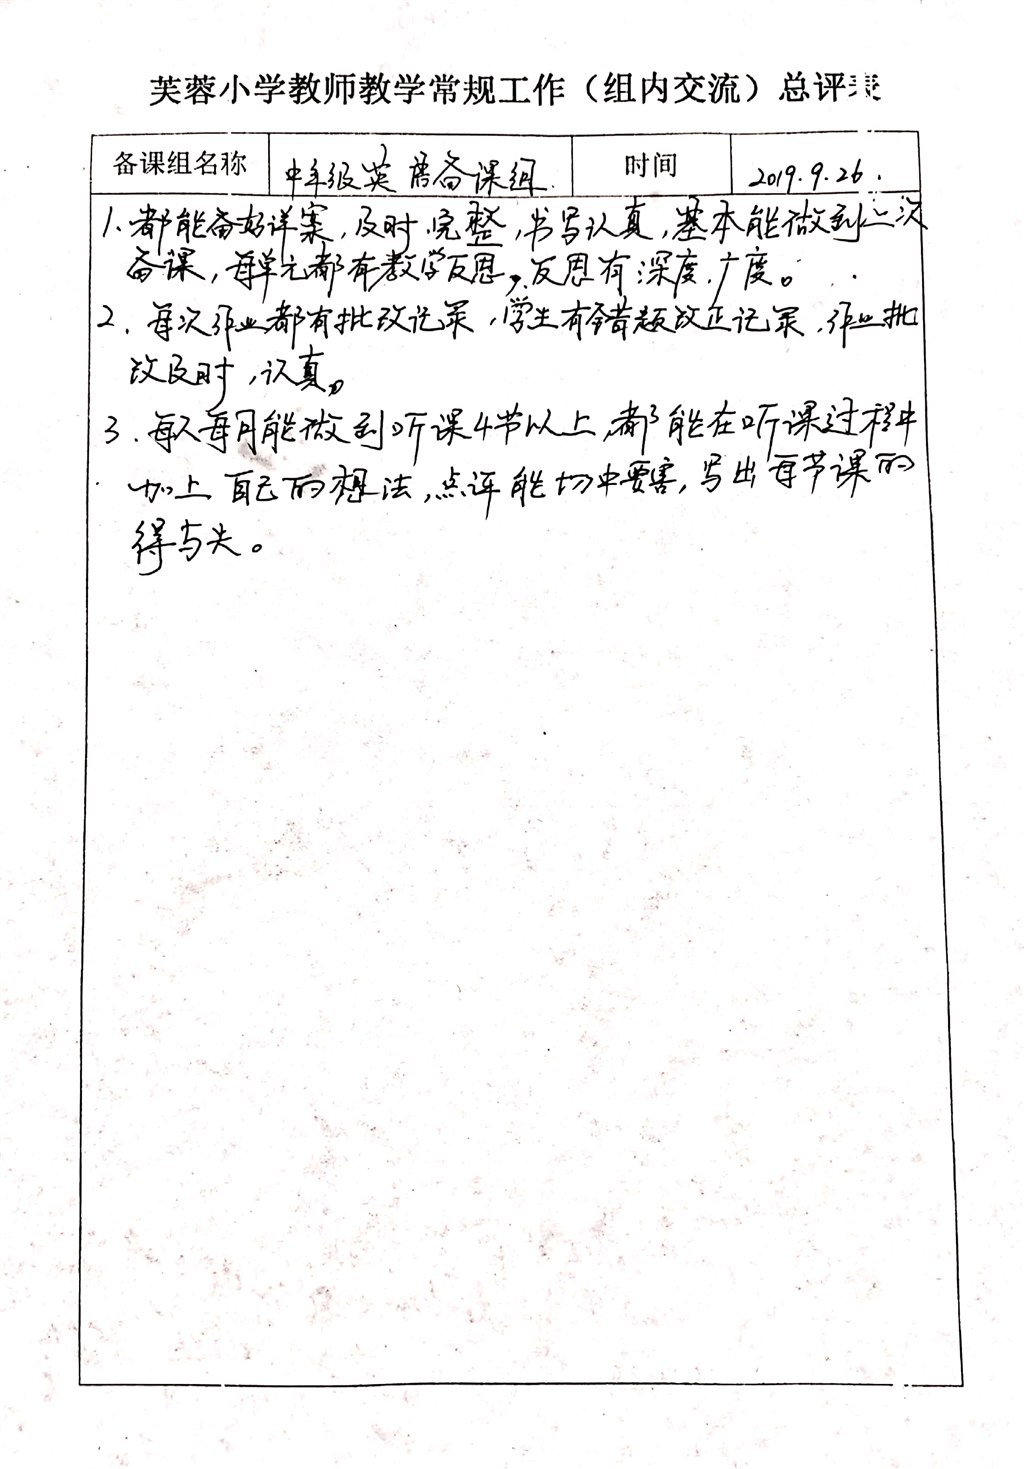 芙蓉小学教师教学常规工作（组内交流）总评表
备课组名称 中年级英语备课组 时间 2019.9.26.
1. 都能备好详案，及时，完整，书写认真，基本能做到二次
备课，每单元都有教学反思，反思有深度，广度。
2. 每次作业都有批改记录，学生有错题改正记录，作业批
改及时，认真。
3. 每人每月能做到听课4节以上，都能在听课过程中
加上自己的想法，点评能切中要害，写出每节课的
得与失。